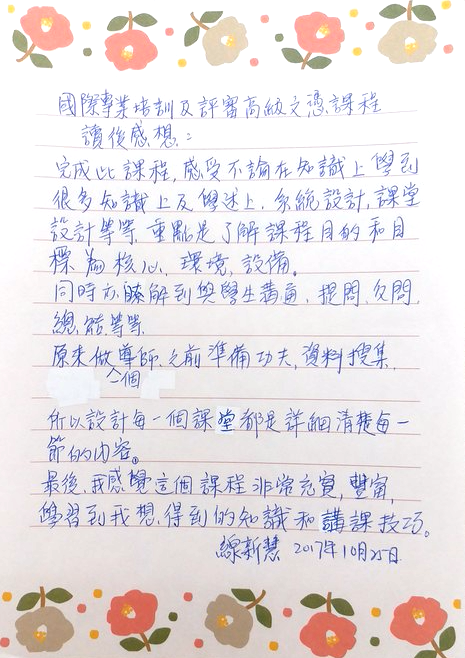 國際專業培訓及評審高級文憑課程
讀後感想：
完成此課程，感受不論在知識上學到
很多知識上及學述上，系統設計，課堂
設計等等，重點是了解課程目的和目
標為核心，環境，設備。
同時亦瞭解到與學生溝通，提問，反問，
總結等等
原來做導師之前準備功夫，資料搜集，
個
所以設計每一個課堂都是詳細清楚每一
節的內容。
最後，我感覺這個課程非常充實，豐富，
學習到我想得到的知識和講課技巧。
線新慧 2017年10月25日